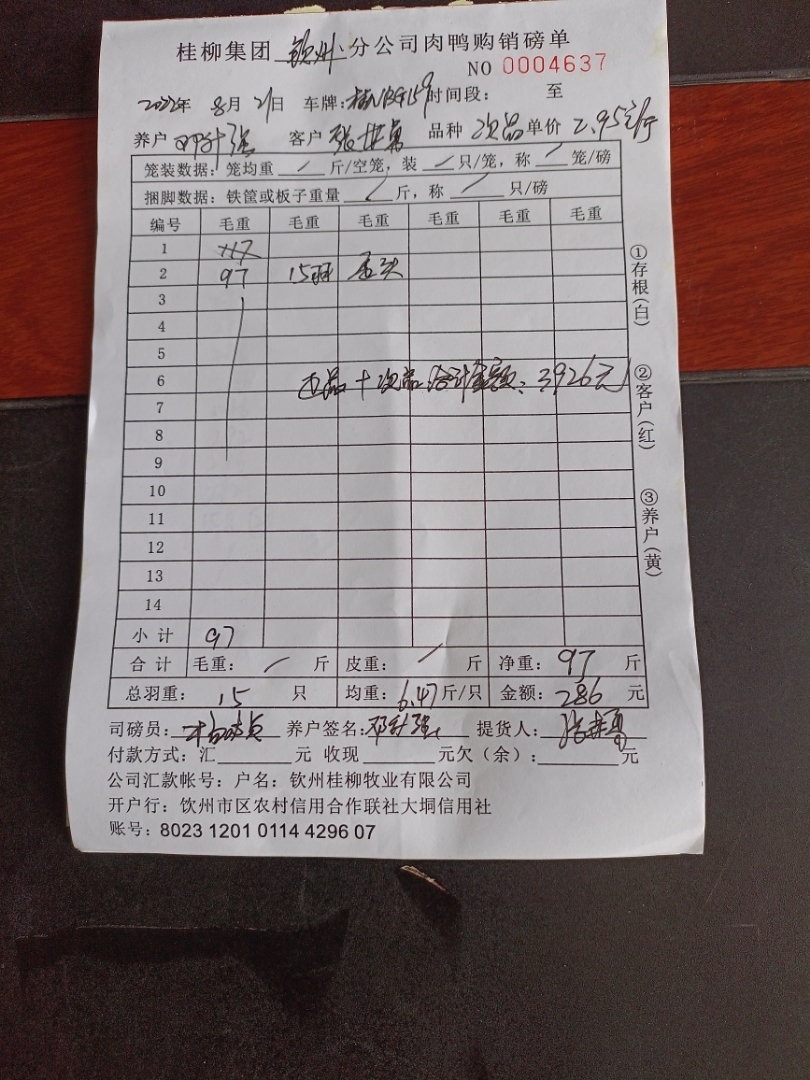 桂柳集团 钦州 分公司肉鸭购销磅单
NO 0004637
2022年 8月 21日 车牌: 时间段: 至
养户 邓升强 客户 张世勇 品种 次品 单价 2.95元/斤
笼装数据: 笼均重 / 斤/空笼, 装 / 只/笼, 称 / 笼/磅
捆脚数据: 铁筐或板子重量 / 斤, 称 / 只/磅
编号 毛重 毛重 毛重 毛重 毛重 毛重
1
2 97 15羽
3
4
5
6 正品+次品 合计金额: 3926元
7
8
9
10
11
12
13
14
小计 97
合计 毛重: / 斤 皮重: / 斤 净重: 97 斤
总羽重: 15 只 均重: 6.47 斤/只 金额: 286 元
司磅员: 养户签名: 邓升强 提货人: 张世勇
付款方式: 汇 元 收现 元欠(余): 元
公司汇款帐号: 户名: 钦州桂柳牧业有限公司
开户行: 钦州市区农村信用合作联社大垌信用社
账号: 8023 1201 0114 4296 07
①存根(白)
②客户(红)
③养户(黄)